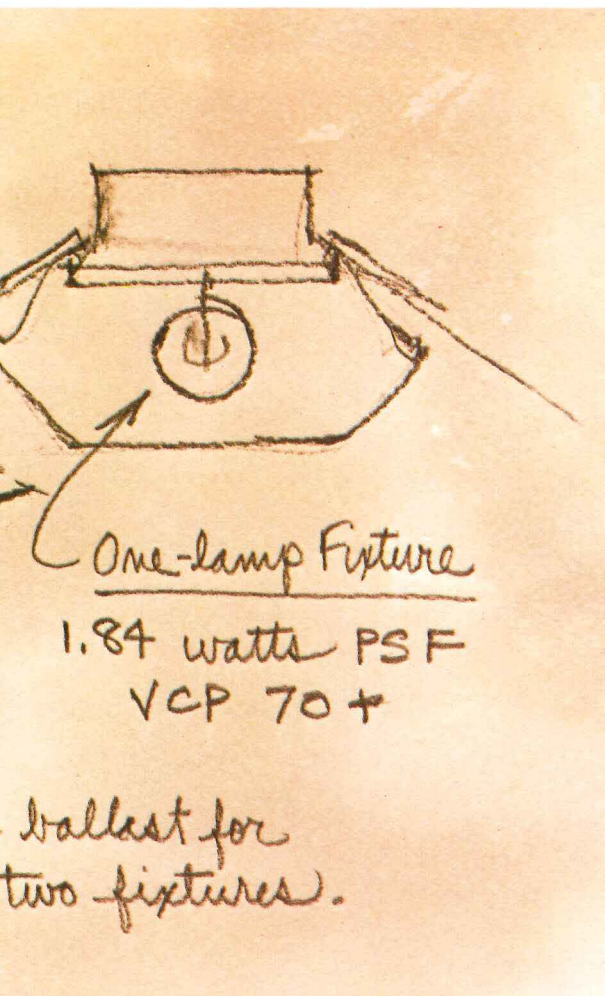 One-lamp Fixture
1.84 watts PSF
VCP 70+
ballast for
two fixtures.